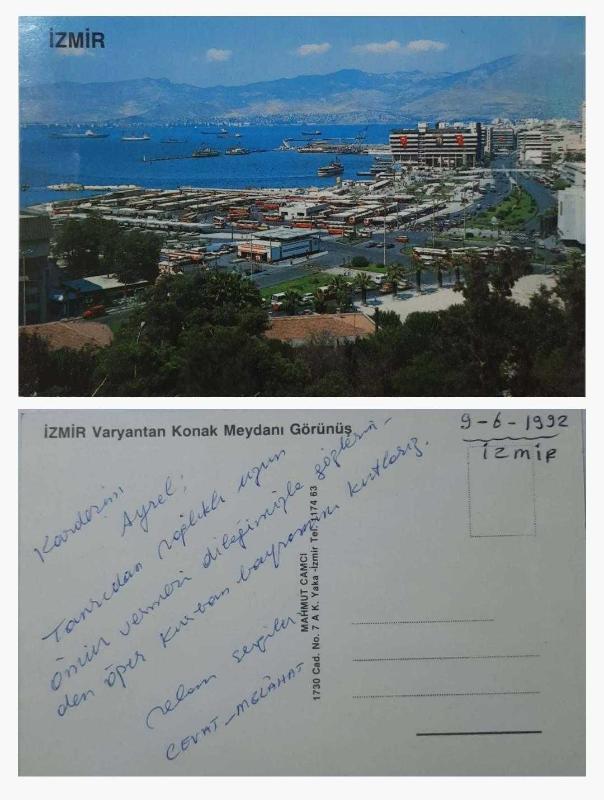 İZMİR
İZMİR Varyantan Konak Meydanı Görünüş
9-6-1992
İZMİR
Kardeşim
Aysel;
Tanrıdan sağlıklı uzun
ömür vermesi dileğimizle gözlerin-
den öper Kurban bayramını kutlarız.
selam sevgiler
CEVAT-MELÂHAT
MAHMUT CAMCI
1730 Cad. No. 7 A K. Yaka -İzmir Tel: 1174 63